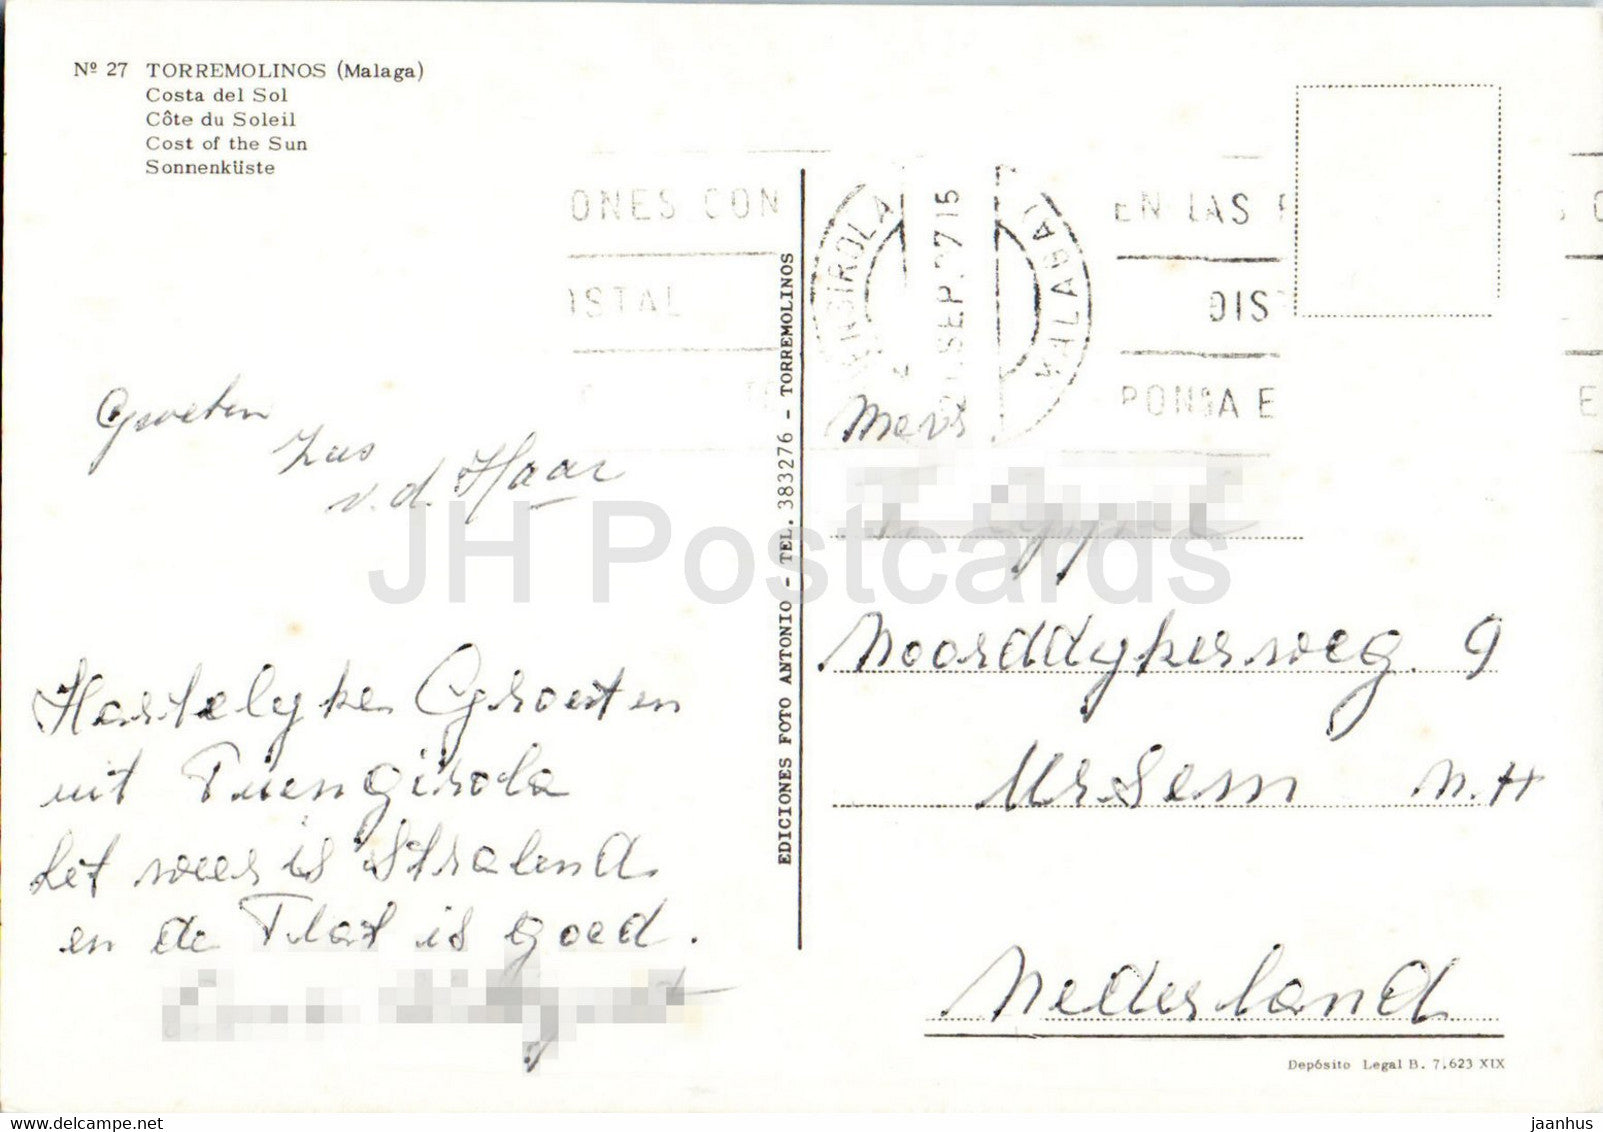 Nº 27 TORREMOLINOS (Malaga)
Costa del Sol
Côte du Soleil
Cost of the Sun
Sonnenküste
ONES CON
OSTAL
FUENGIROLA
SEP.
MALAGA
EN LAS
DIS
PONGA E
Groeten
Zus
v.d. Haar
Hartelyke Groeten
uit Fuengirola
het weer is Stralend
en de Flat is goed.
EDICIONES FOTO ANTONIO - TEL. 383276 - TORREMOLINOS
Mevr
Noorddykerweg. 9
Ursem N.H
Nederland
Depósito Legal B. 7.623 XIX
JH Postcards
delcampe.net
jaanhus